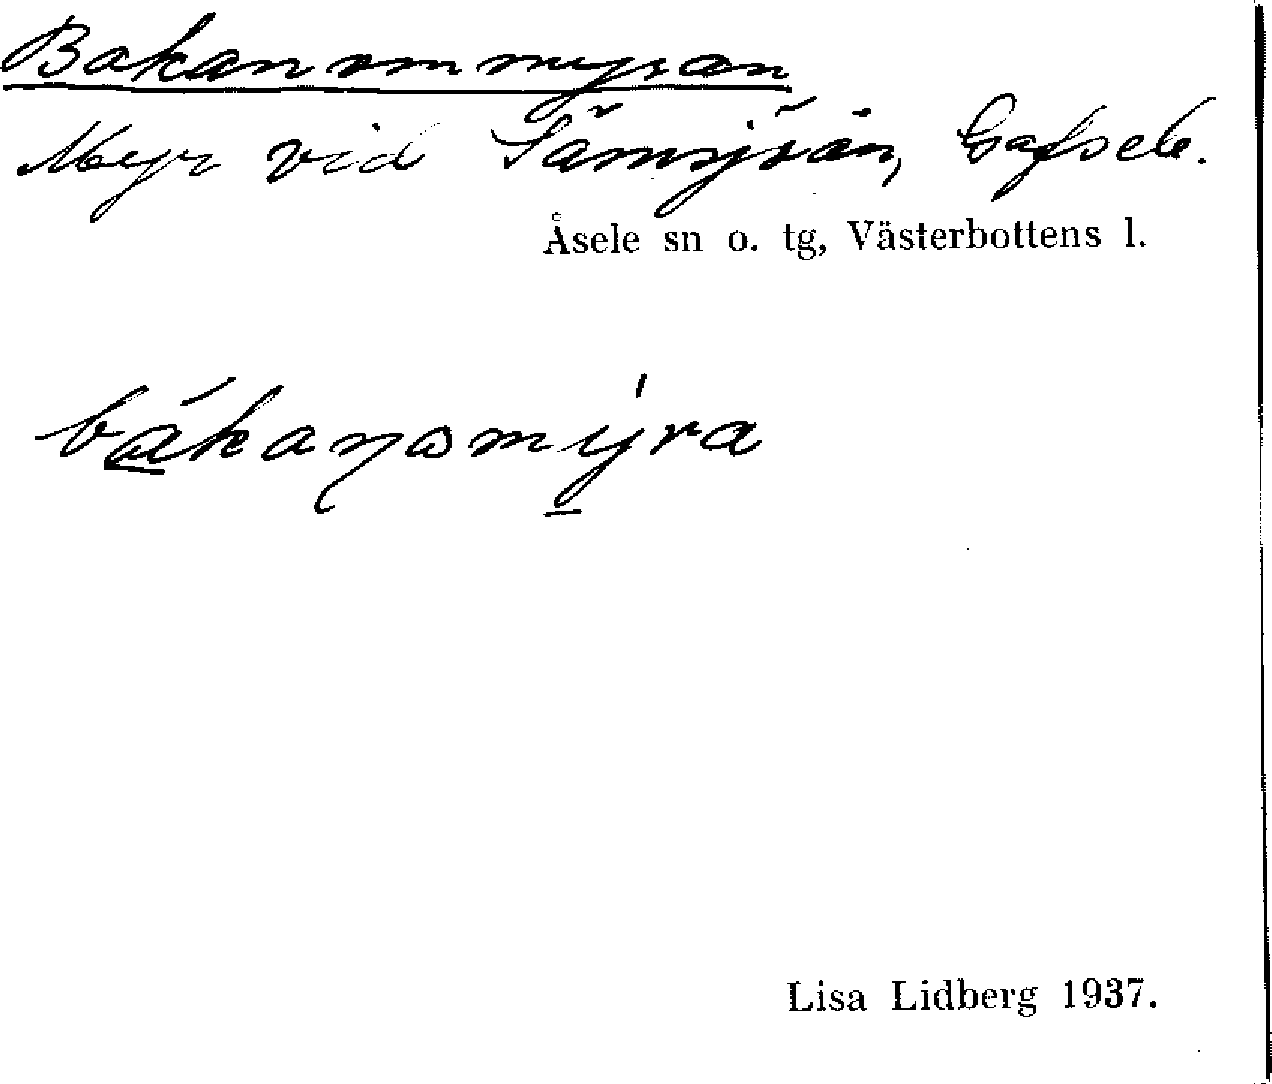 Bakanommyran
Myr vid Sämsjöån, Gafsele.
Åsele sn o. tg, Västerbottens l.
bákaŋomýra
Lisa Lidberg 1937.